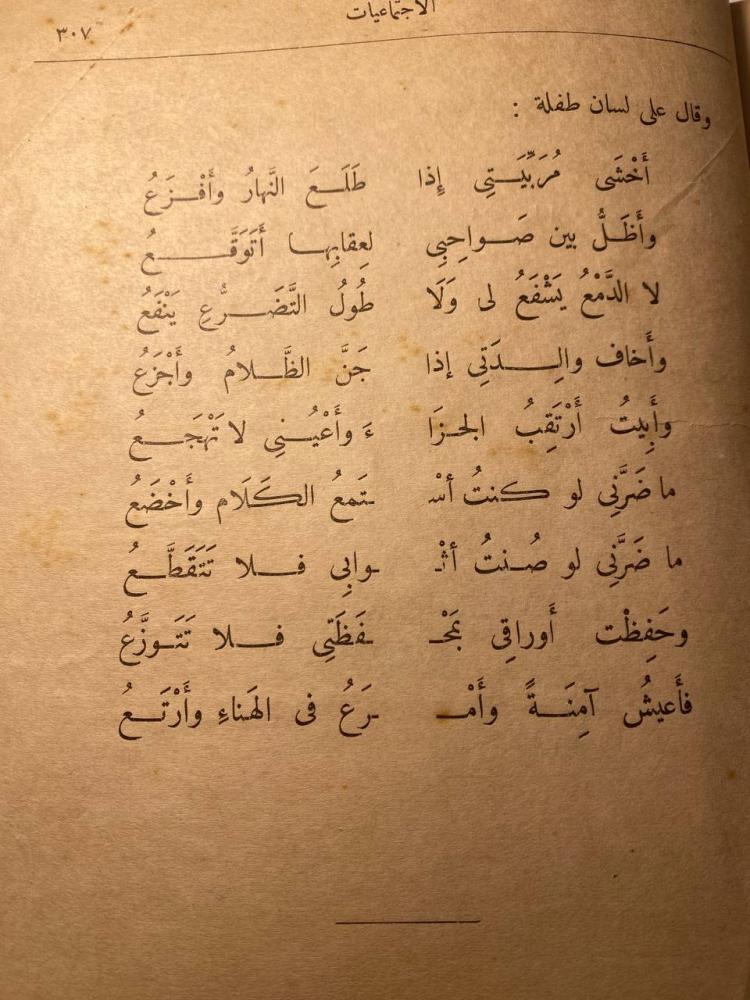 الاجتماعيات
٣٠٧
وقال على لسان طفلة :
أَخْشَى مُرَبِّيَتِى إِذا طَلَعَ النَّهارُ وأَفْزَعُ
وأَظَلُّ بين صَواحِبِى لعِقابِها أَتَوَقَّعُ
لا الدَّمْعُ يَشْفَعُ لى وَلَا طُولُ التَّضَرُّعِ يَنْفَعُ
وأَخاف والِدَتِى إذا جَنَّ الظَّلامُ وأَجْزَعُ
وأَبِيتُ أَرْتَقِبُ الجزَا ءَ وأَعْيُنِى لا تَهْجَعُ
ما ضَرَّنِى لو كنتُ أسْـ ـتَمعُ الكَلَام وأَخْضَعُ
ما ضَرَّنِى لو صُنتُ أثْـ ـوابِى فلا تَتَقَطَّعُ
وحَفِظْت أَوراقِى بَمَحْـ ـفَظَتِى فلا تَتَوزَّعُ
فأَعيشُ آمِنَةً وأَمْـ ـرَعُ فى الهَناءِ وأَرْتَعُ